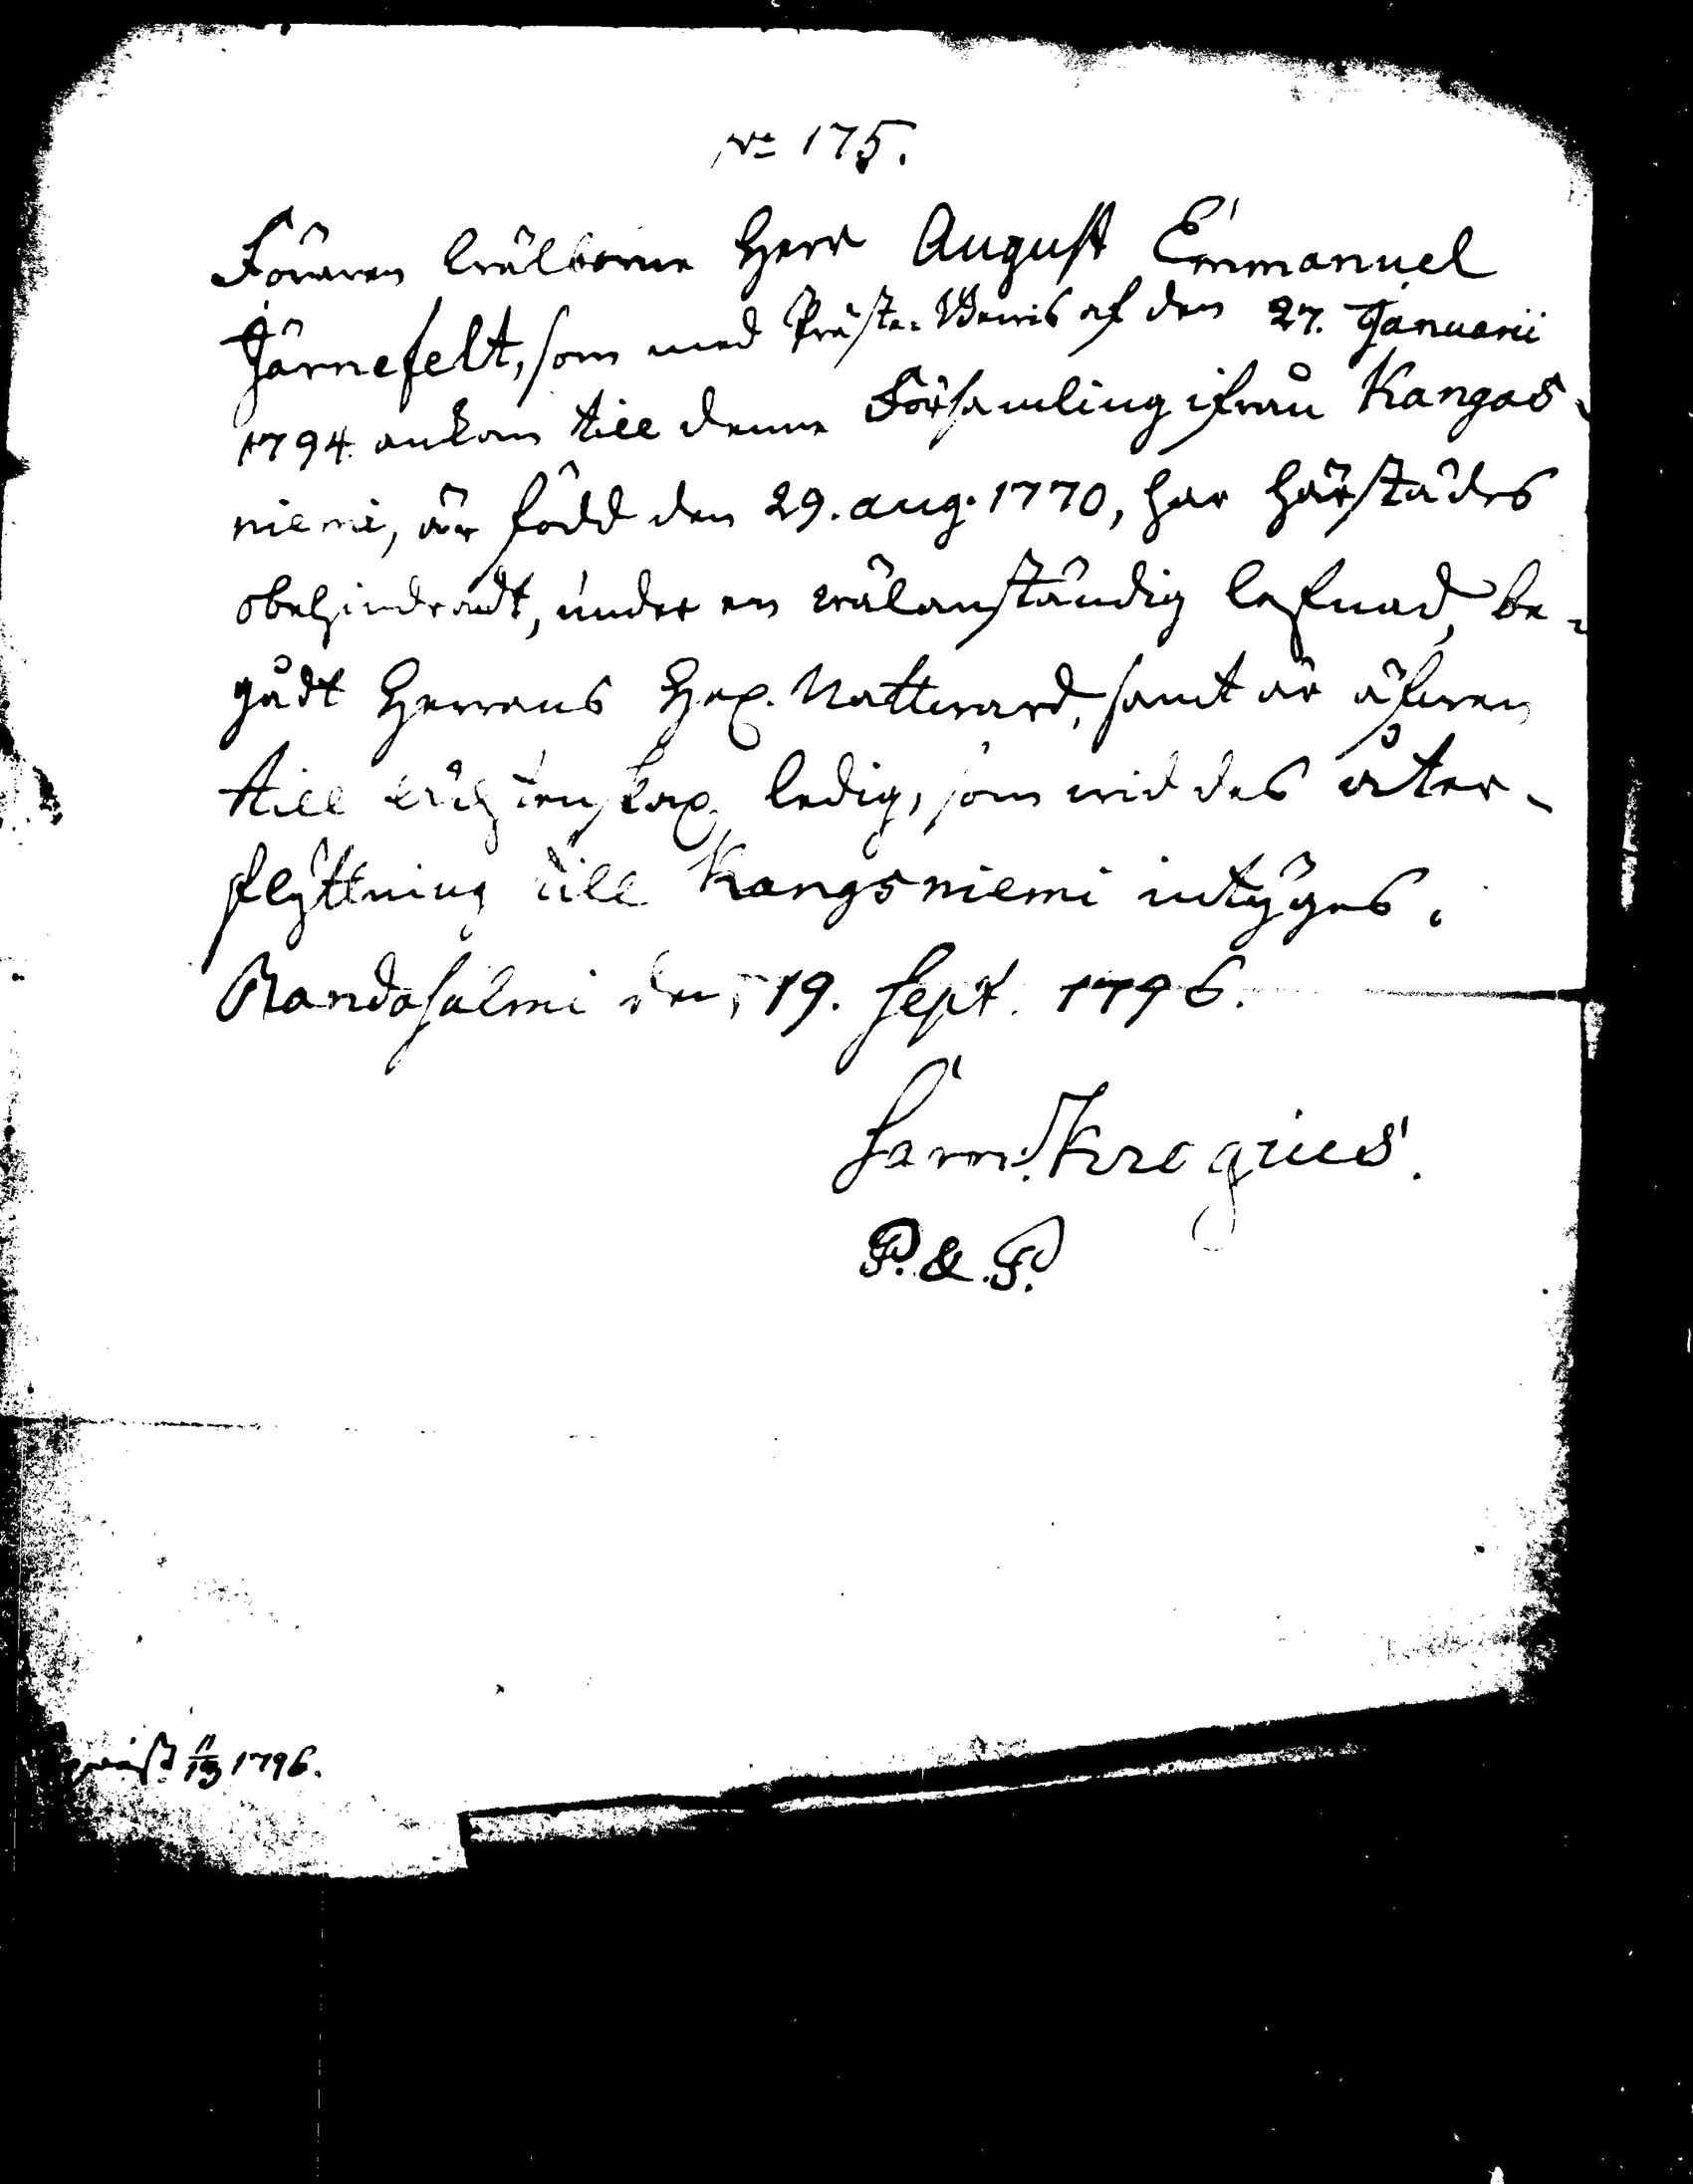 No 175.
Föraren Wälborne Herr August Emmanuel
Järnefelt, som med Präste-Bewis af den 27. Januarii
1794 ankom till denne Församling ifrån Kangas-
niemi, är född den 29. aug. 1770, har härstädes
obehindradt, under en wälanständig lefnad, be-
gådt Herrans Hel. Nattward, samt är äfwen
till ächtenskap ledig, som wid des åter-
flyttning till Kangsniemi intyges.
Randasalmi den 19. Sept. 1796.
Sam. Krogius.
P. & P.
1796.